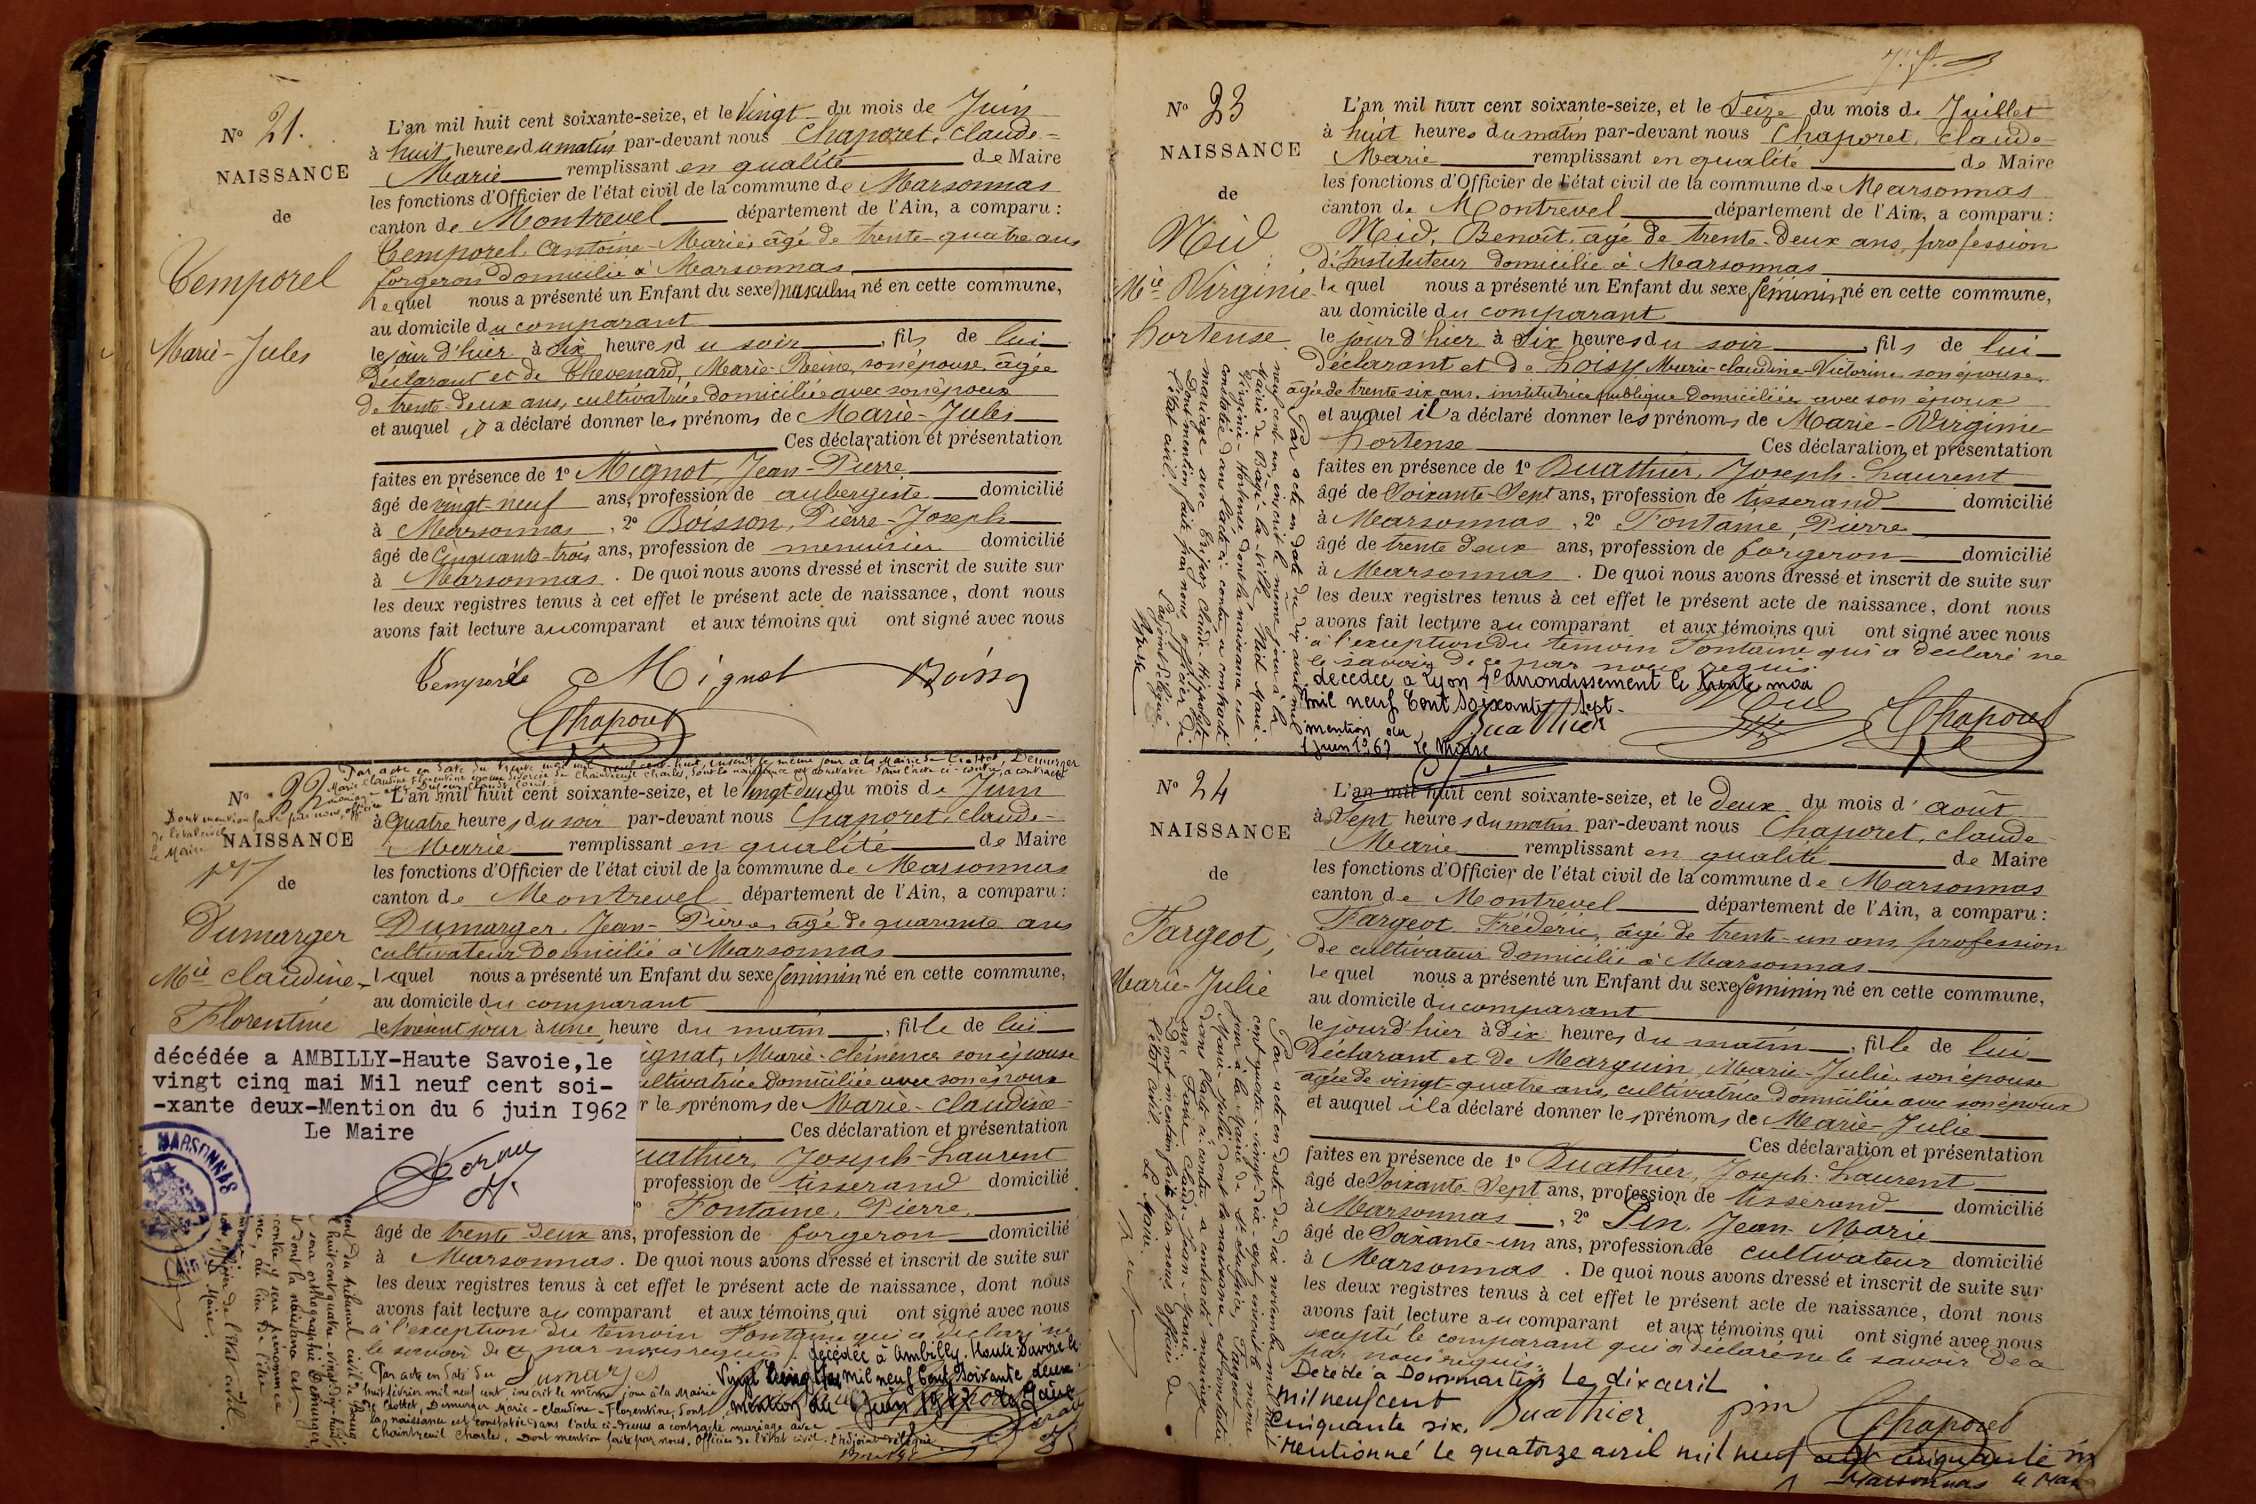 N° 21.
NAISSANCE
de
Temporel
Marie-Jules
L'an mil huit cent soixante-seize, et le Vingt du mois de Juin
à huit heures du matin par-devant nous Chaporet, Claude-
Marie remplissant en qualité de Maire
les fonctions d'Officier de l'état civil de la commune de Marsonnas
canton de Montrevel département de l'Ain, a comparu :
Temporel, Antoine-Marie, âgé de trente-quatre ans
forgeron domicilié à Marsonnas
lequel nous a présenté un Enfant du sexe masculin né en cette commune,
au domicile du comparant
le jour d'hier à dix heures du soir, fils de lui
Déclarant et de Thevenard, Marie-Reine, son épouse, âgée
de trente-deux ans, cultivatrice domiciliée avec son époux
et auquel il a déclaré donner les prénoms de Marie-Jules
Ces déclaration et présentation
faites en présence de 1° Mignot, Jean-Pierre
âgé de vingt-neuf ans, profession de aubergiste domicilié
à Marsonnas, 2° Boisson, Pierre-Joseph
âgé de Cinquante-trois ans, profession de menuisier domicilié
à Marsonnas. De quoi nous avons dressé et inscrit de suite sur
les deux registres tenus à cet effet le présent acte de naissance, dont nous
avons fait lecture au comparant et aux témoins qui ont signé avec nous
Mignot
Chaporet
N° 22
NAISSANCE
de
Dumarger
Mie Claudine-
Florentine
Dont mention faite par nous, off
de l'etat civil
Le Maire
Par acte en date du trente mai mil neuf cent huit, inscrit le même jour à la Mairie de Crottet, Demurger
Marie Claudine Florentine épouse divorcée de Chaintreuil Charles, dont la naissance est constatée dans l'acte ci-contre, a contracté
L'an mil huit cent soixante-seize, et le vingt deux du mois de Juin
à quatre heures du soir par-devant nous Chaporet, Claude-
Marie remplissant en qualité de Maire
les fonctions d'Officier de l'état civil de la commune de Marsonnas
canton de Montrevel département de l'Ain, a comparu :
Dumarger, Jean-Pierre, âgé de quarante ans
cultivateur domicilié à Marsonnas
lequel nous a présenté un Enfant du sexe féminin né en cette commune,
au domicile du comparant
le présent jour à une heure du matin, fille de lui
ignat, Marie-Clémence son épouse
ultivatrice domiciliée avec son époux
r les prénoms de Marie-Claudine-
Ces déclaration et présentation
uathier, Joseph-Laurent
profession de tisserand domicilié
Fontaine, Pierre,
âgé de trente deux ans, profession de forgeron domicilié
à Marsonnas. De quoi nous avons dressé et inscrit de suite sur
les deux registres tenus à cet effet le présent acte de naissance, dont nous
avons fait lecture au comparant et aux témoins qui ont signé avec nous
à l'exception du témoin Fontaine qui a déclaré ne
le savoir de ce par nous requis.
décédée à Ambilly-Haute Savoie le
Vingt Cinq Mai mil neuf Cent Soixante deux
mention du 6 Juin 1962 Le Maire
Par acte en date du
huit février mil neuf cent, inscrit le même jour à la Mairie
de Crottet, Demurger Marie-Claudine-Florentine, dont
la naissance est constatée dans l'acte ci-dessus a contracté mariage avec
Chaintreuil Charles. Dont mention faite par nous, Officier de l'état civil. L'adjoint délégué
décédée a AMBILLY-Haute Savoie,le
vingt cinq mai Mil neuf cent soi-
-xante deux-Mention du 6 juin I962
Le Maire
MARSONNAS
N° 23
NAISSANCE
de
Nid
Mie Virginie
hortense
L'an mil huit cent soixante-seize, et le Seize du mois de Juillet
à huit heures du matin par-devant nous Chaporet, Claude
Marie remplissant en qualité de Maire
les fonctions d'Officier de l'état civil de la commune de Marsonnas
canton de Montrevel département de l'Ain, a comparu :
Nid, Benoît, âgé de trente-deux ans, profession
d'Instituteur domicilié à Marsonnas
lequel nous a présenté un Enfant du sexe féminin né en cette commune,
au domicile du comparant
le jour d'hier à six heures du soir, fils de lui
Déclarant et de Loisy, Marie-Claudine-Victorine, son épouse,
âgée de trente six ans, institutrice publique domiciliée avec son époux
et auquel il a déclaré donner les prénoms de Marie-Virginie
hortense Ces déclaration et présentation
faites en présence de 1° Buathier, Joseph-Laurent
âgé de Soixante-Sept ans, profession de tisserand domicilié
à Marsonnas, 2° Fontaine, Pierre
âgé de trente deux ans, profession de forgeron domicilié
à Marsonnas. De quoi nous avons dressé et inscrit de suite sur
les deux registres tenus à cet effet le présent acte de naissance, dont nous
avons fait lecture au comparant et aux témoins qui ont signé avec nous
à l'exception du témoin Fontaine qui a déclaré ne
le savoir de ce par nous requis.
décédée a Lyon arrondissement le trente mai
mil neuf Cent Soixante Sept.
mention du
1 juin 1967 Le Maire
Buathier
Nid
Chaporet
Par acte en date du dix avril mil
neuf cent un, inscrit le même jour à la
Mairie de Bâgé-la-Ville, Nid Marie-
Virginie-Hortense, dont la naissance est
constatée dans l'acte ci-contre a contracté
mariage avec Claude-Hippolyte
Dont mention faite par nous, officier de
l'état civil. L'adjoint délégué
N° 24
NAISSANCE
de
Fargeot,
Marie-Julie
L'an mil huit cent soixante-seize, et le deux du mois d'août
à Sept heures du matin par-devant nous Chaporet, Claude
Marie remplissant en qualité de Maire
les fonctions d'Officier de l'état civil de la commune de Marsonnas
canton de Montrevel département de l'Ain, a comparu :
Fargeot Frédéric, âgé de trente-un ans, profession
de cultivateur domicilié à Marsonnas
lequel nous a présenté un Enfant du sexe féminin né en cette commune,
au domicile du comparant
le jour d'hier à dix heures du matin, fille de lui
Déclarant et de Marguin, Marie-Julie, son épouse
âgée de vingt-quatre ans, cultivatrice domiciliée avec son époux
et auquel il a déclaré donner les prénoms de Marie-Julie
Ces déclaration et présentation
faites en présence de 1° Buathier, Joseph-Laurent
âgé de Soixante-Sept ans, profession de tisserand domicilié
à Marsonnas, 2° Pin, Jean-Marie
âgé de Soixante-un ans, profession de cultivateur domicilié
à Marsonnas. De quoi nous avons dressé et inscrit de suite sur
les deux registres tenus à cet effet le présent acte de naissance, dont nous
avons fait lecture au comparant et aux témoins qui ont signé avec nous
excepté le comparant qui a déclaré ne le savoir de ce
par nous requis.
Décédé à Dommartin Le dix avril
mil neuf cent
cinquante six.
Buathier
pin
Chaporet
Mentionné le quatorze avril mil neuf cent cinquante six
Marsonnas le Maire
Par acte en date du dix novembre mil huit
cent quatre-vingt-dix-sept, inscrit le même
jour à la Mairie de St Sulpice, Fargeot
Marie-Julie dont la naissance est constatée
dans l'acte ci-contre a contracté mariage
avec Claude-Jean-Marie.
Dont mention faite par nous, officier de
l'état civil. Le Maire